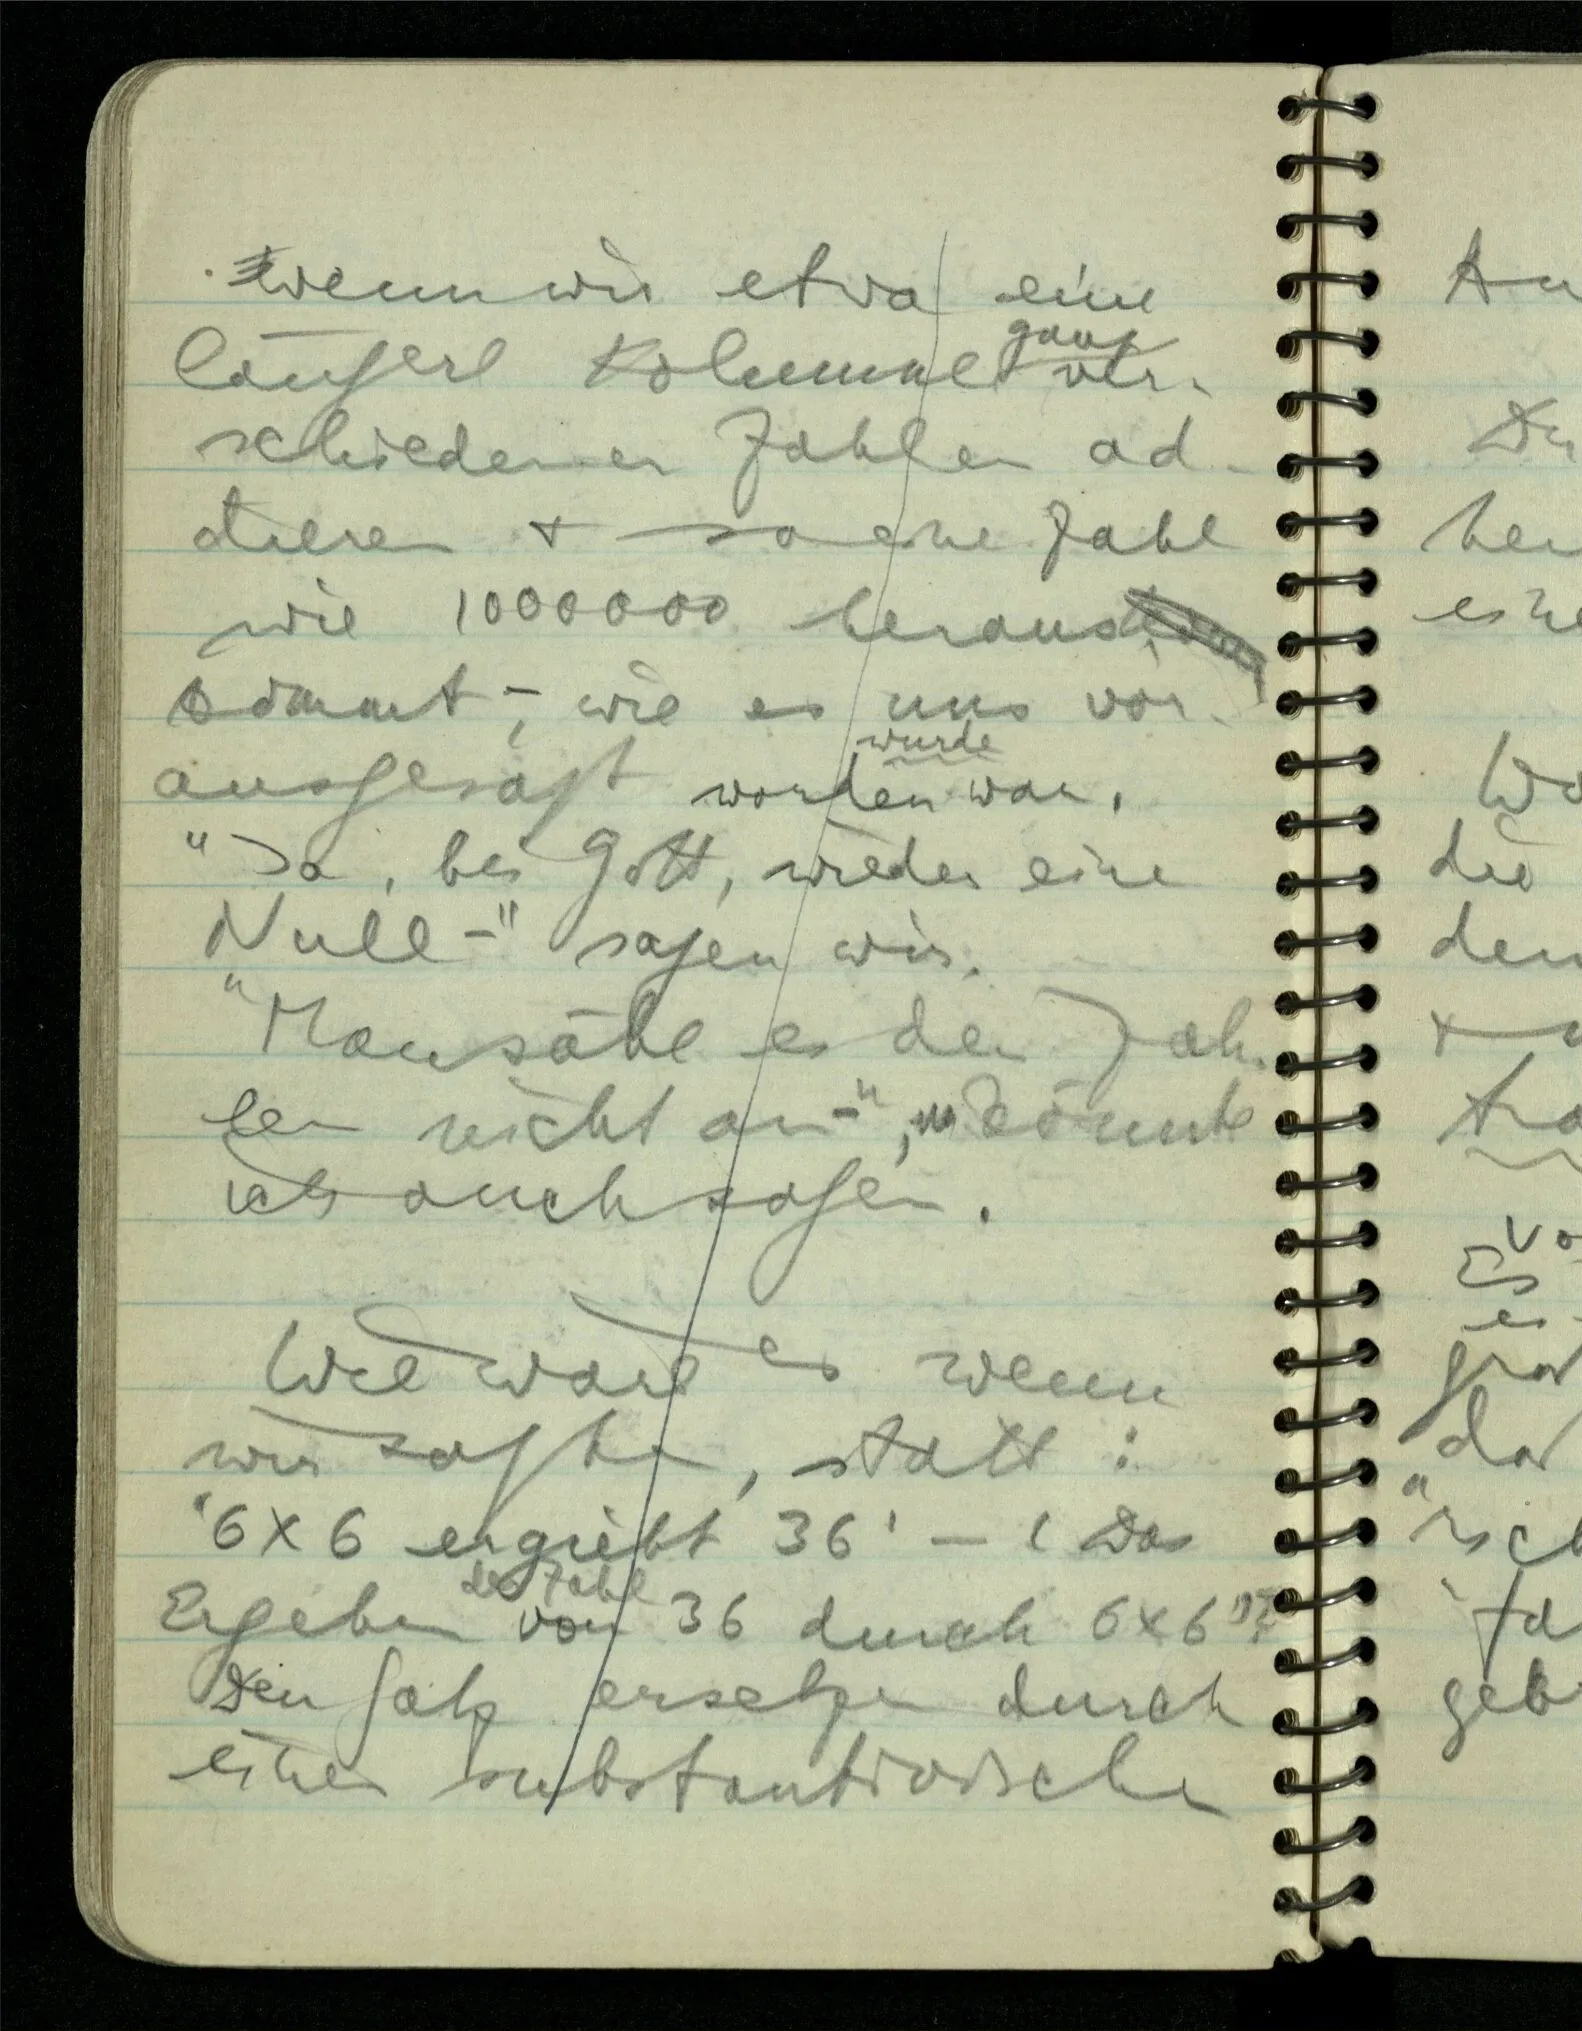 wenn wir etwa eine
ganz
längere Kolumne ver-
schiedener Zahlen ad-
dieren + so eine Zahl
wie 1000000 heraus
kommt –, wie es uns vor-
wurde
ausgesagt worden war.
"Ja, bei Gott, wieder eine
Null –" sagen wir.
"Man sähe es den Zah-
len nicht an –", könnte
ich auch sagen.
Wie wäre es wenn
wir sagten, statt :
'6×6 ergiebt 36' – 'Das
der Zahl
Ergeben von 36 durch 6×6'?
Den Satz ersetzen durch
einen substantivischen
An
es
Wo
die
den
Es
es